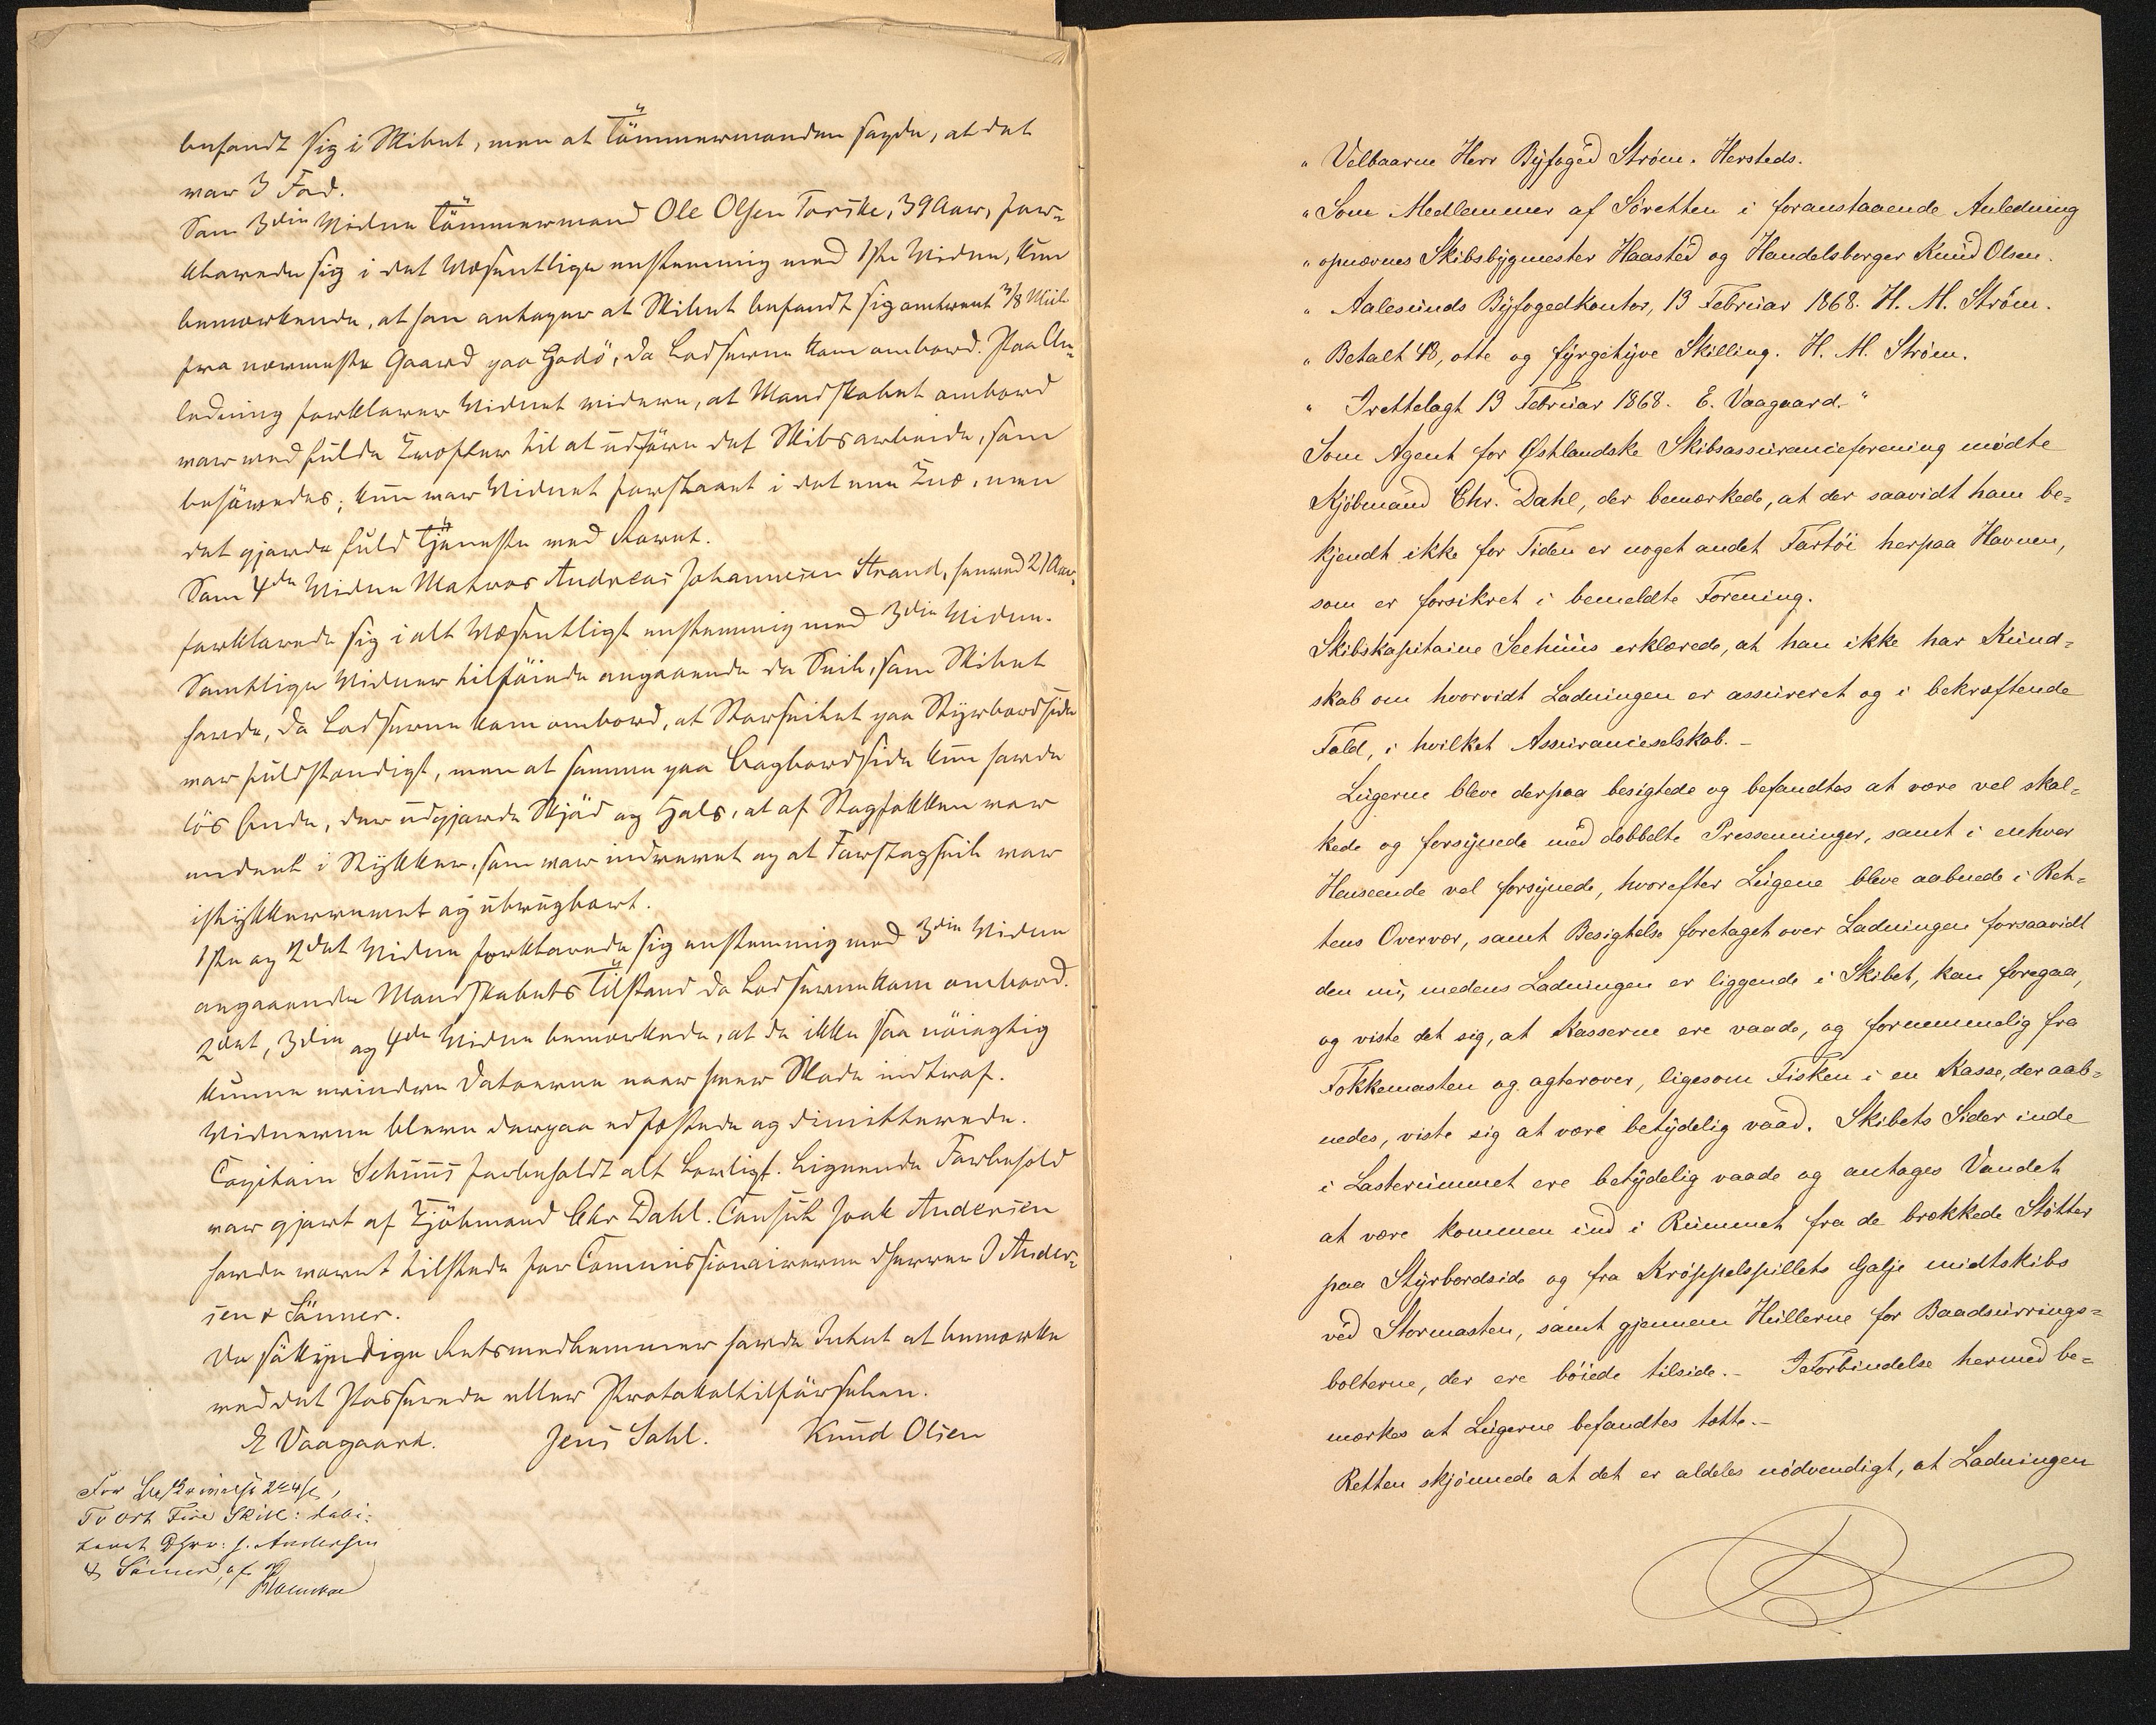 befandt sig i Skibet, men at Tömmermanden sagde, at det
var 3 Fod.
Som 3die Vidne Tömmermand Ole Olsen Torske, 39 Aar, for-
klarede sig i det Væsentlige enstemmig med 1ste Vidne, kun
bemærkende, at han antager at Skibet befandt sig omtrent 3/8 Miil
fra nærmeste Gaard paa Godö, da Lodserne kom ombord. Paa An-
ledning forklarer Vidnet videre, at Mandskabet ombord
var ved fulde Kræfter til at udföre det Skibsarbeide, som
behövedes; kun var Vidnet forslaaet i det ene Knæ, men
det gjorde fuld Tjeneste ved Roret.
Som 4de Vidne Matros Andreas Johannesen Strand, henved 21 Aar,
forklarede sig i alt Væsentligt enstemmig med 3die Vidne.
Samtlige Vidner tilföiede angaaende de Seil, som Skibet
havde, da Lodserne kom ombord, at Storseilet paa Styrbordside
var fuldstændigt, men at samme paa Bagbordside kun havde
lös Ende, der udgjorde Skjöd og Hals, at af Stagfokken var
endeel i Stykker, som var indrevet og at Forstagseil var
istykkerrevet og ubrugbart.
1ste og 2det Vidne forklarede sig enstemmig med 3die Vidne
angaaende Mandskabets Tilstand da Lodserne kom ombord.
2det, 3die og 4de Vidne bemærkede, at de ikke saa nöiagtig
kunne erindre Datoerne naar hver Skade indtraf.
Vidnerne bleve derpaa edfæstede og dimitterede.
Capitain Sehuus forbeholdt alt Lovligt. Lignende Forbehold
var gjort af Kjöbmand Chr Dahl. Consul Joak Andersen
havde været tilstede for Commissionairerne Dherrer J Ander-
sen & Sönner.
De sökyndige Retsmedlemmer havde Intet at bemærke
ved det Passerede eller Protokoltilförselen.
E Vaagaard. Jens Dahl. Knud Olsen
For 2 4
To Ort Fire Skill: debi-
teret Dhrr: J. Andersen
& Sönner, af
" Velbaarne Herr Byfoged Strøm. Hersteds.
" Som Medlemmer af Søretten i foranstaaende Anledning
" opnævnes Skibsbygmester Haasted og Handelsborger Knud Olsen.
" Aalesunds Byfogedkontor, 13 Februar 1868. H. M. Strøm.
" Betalt 48, otte og fyrgetyve Skilling. H. M. Strøm.
" Irettelagt 13 Februar 1868. E. Vaagaard."
Som Agent for Østlandske Skibsassuranceforening mødte
Kjøbmand Chr. Dahl, der bemærkede, at der saavidt ham be-
kjendt ikke for Tiden er noget andet Fartöi herpaa Havnen,
som er forsikret i bemeldte Forening.
Skibskapitaine Seehuus erklærede, at han ikke har Kund-
skab om hvorvidt Ladningen er assureret og i bekræftende
Fald, i hvilket Assuranceselskab. -
Lugerne bleve derpaa besigtede og befandtes at være vel skal-
kede og forsynede med dobbelte Pressenninger, samt i enhver
Henseende vel forsynede, hvorefter Lugene bleve aabnede i Ret-
tens Overvær, samt Besigtelse foretaget over Ladningen forsaavidt
den nu, medens Ladningen er liggende i Skibet, kan foregaa,
og viste det sig, at Kasserne ere vaade, og fornemmelig fra
Fokkemasten og agterover, ligesom Fisken i en Kasse, der aab-
nedes, viste sig at være betydelig vaad. Skibets Sider inde
i Lasterummet ere betydelig vaade og antages Vandet
at være kommen ind i Rummet fra de brækkede Støtter
paa Styrbordside og fra Krøppelspillets Galje midtskibs
ved Stormasten, samt gjennem Hullerne for Baadsurrings-
bolterne, der ere böiede tilside. - I Forbindelse hermed be-
mærkes at Lugerne befandtes tætte. -
Retten skjønnede at det er aldeles nödvendigt, at Ladningen